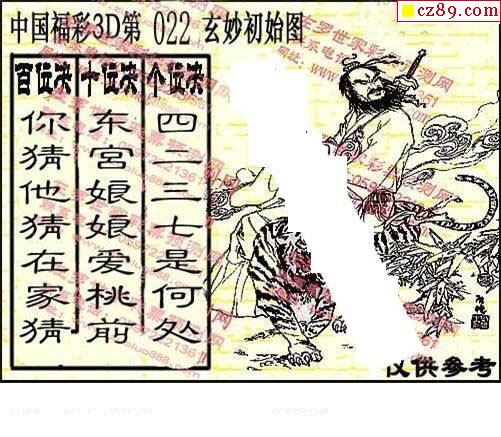 cz89.com
中国福彩3D第 022 玄妙初始图
百位决 十位决 个位决
你猜他猜在家猜
东宮娘娘爱桃前
四二三七是何处
仅供参考